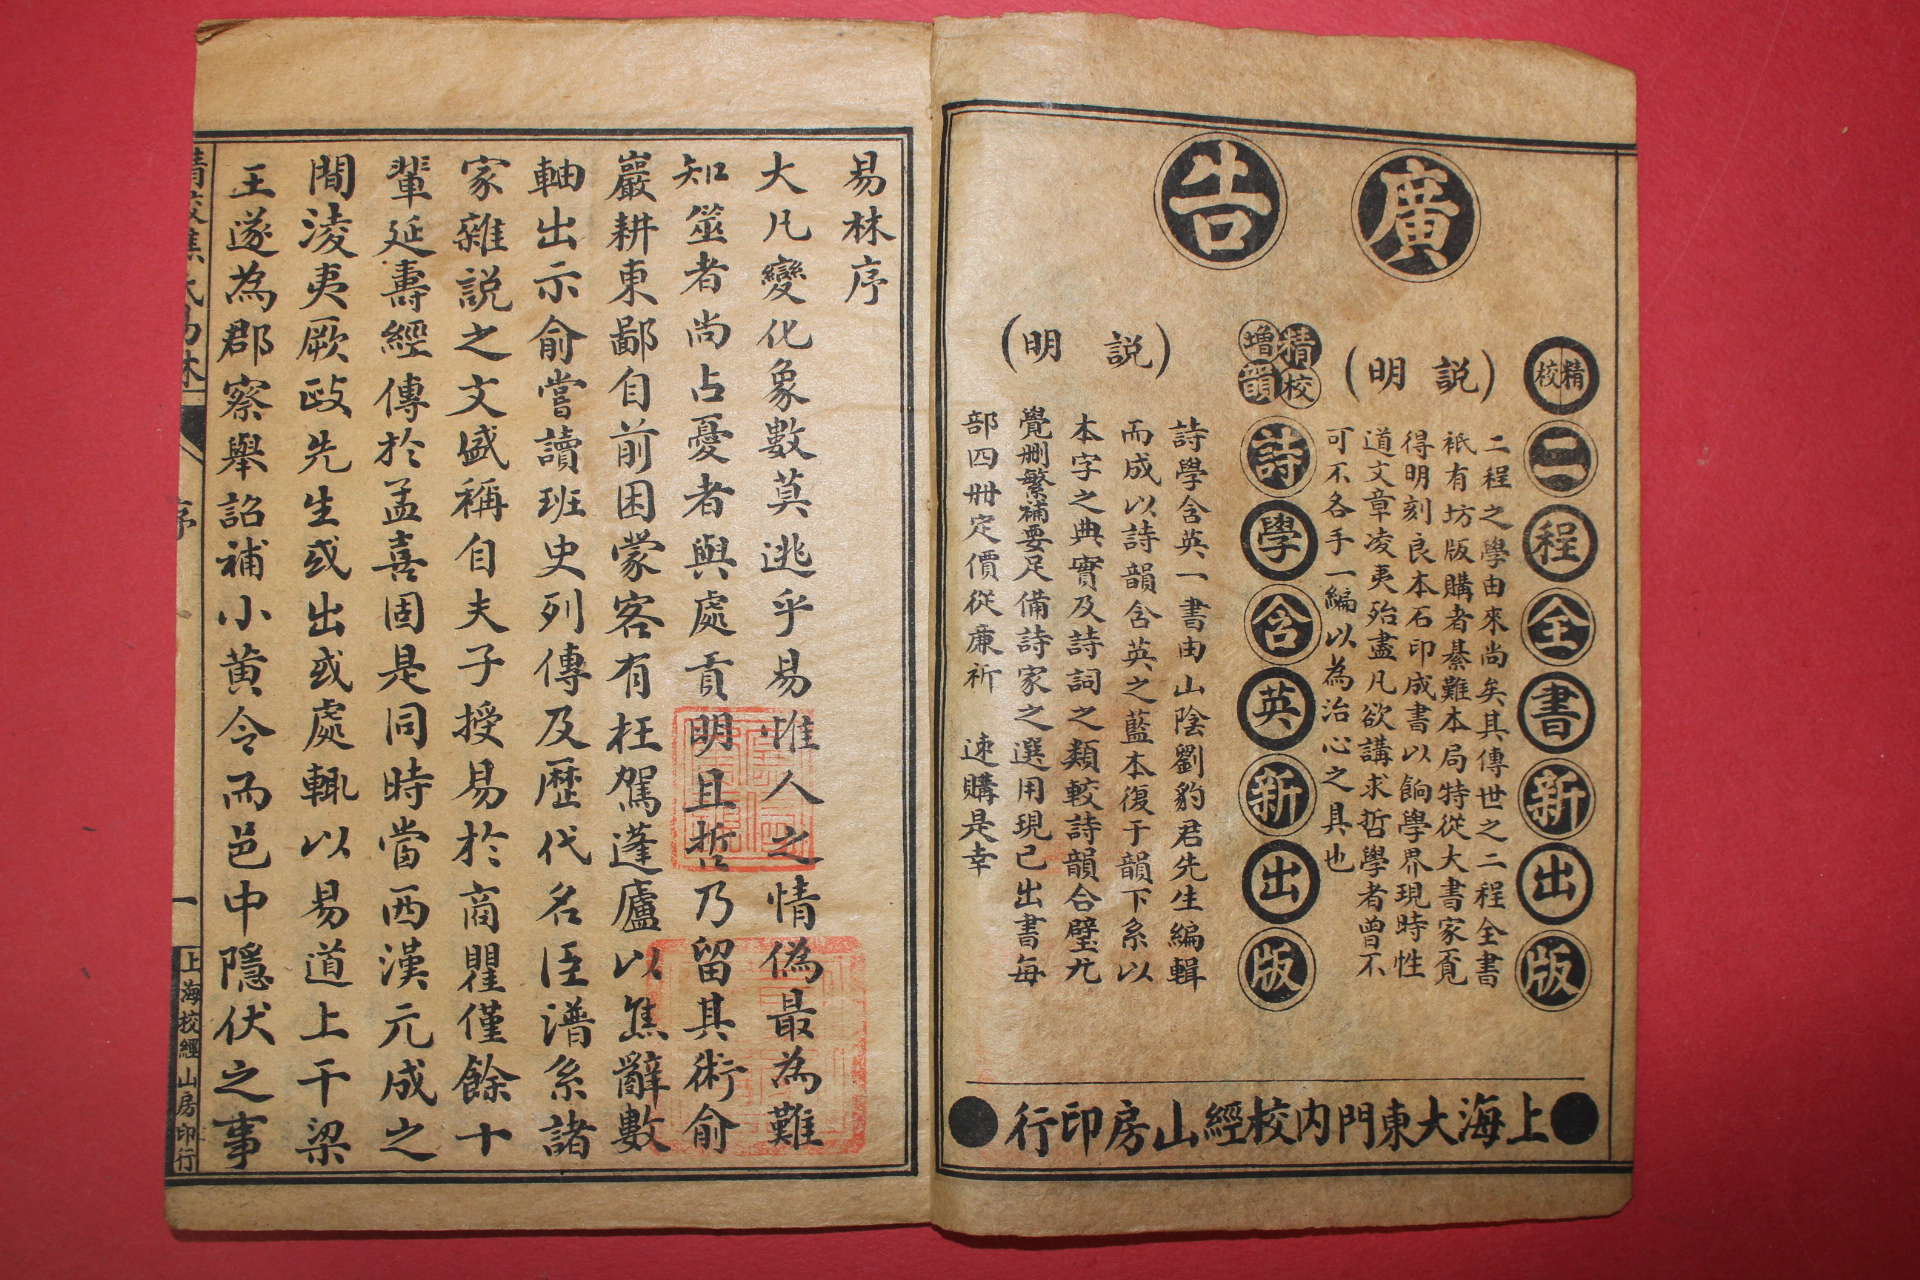 廣告
精校
二程全書新出版
（說明）
二程之學由來尚矣其傳世之二程全書
祇有坊版購者綦難本局特從大書家覓
得明刻良本石印成書以餉學界現時性
道文章凌夷殆盡凡欲講求哲學者曾不
可不各手一編以為治心之具也
精校
增韻
詩學含英新出版
（說明）
詩學含英一書由山陰劉豹君先生編輯
而成以詩韻含英之藍本復于韻下系以
本字之典實及詩詞之類較詩韻合璧尤
覺刪繁補要足備詩家之選用現已出書每
部四冊定價從廉祈 速購是幸
上海大東門內校經山房印行
易林序
大凡變化象數莫逃乎易惟人之情偽最為難
知筮者尚占憂者與處貢明且哲乃留其術俞
巖耕東鄙自前困蒙客有枉駕蓬廬以焦辭數
軸出示俞嘗讀班史列傳及歷代名臣譜系諸
家雜說之文盛稱自夫子授易於商瞿僅餘十
輩延壽經傳於孟喜固是同時當西漢元成之
間淩夷厥政先生或出或處輒以易道上干梁
王遂為郡察舉詔補小黃令而邑中隱伏之事
精校焦氏易林
序
一
上海校經山房印行